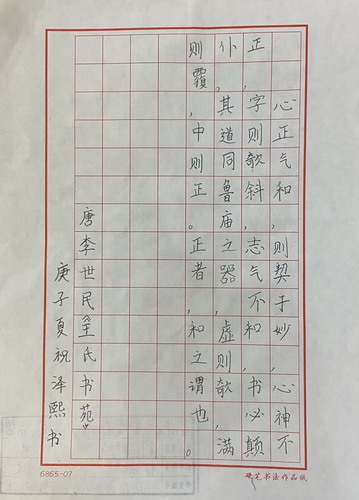 心正气和，则契于妙，心神不
正，字则欹斜，志气不和，书必颠
仆。其道同鲁庙之器，虚则欹，满
则覆，中则正。正者，和之谓也。
唐李世民《王氏书苑》
庚子夏祝泽熙书
6865-07
硬笔书法作品纸